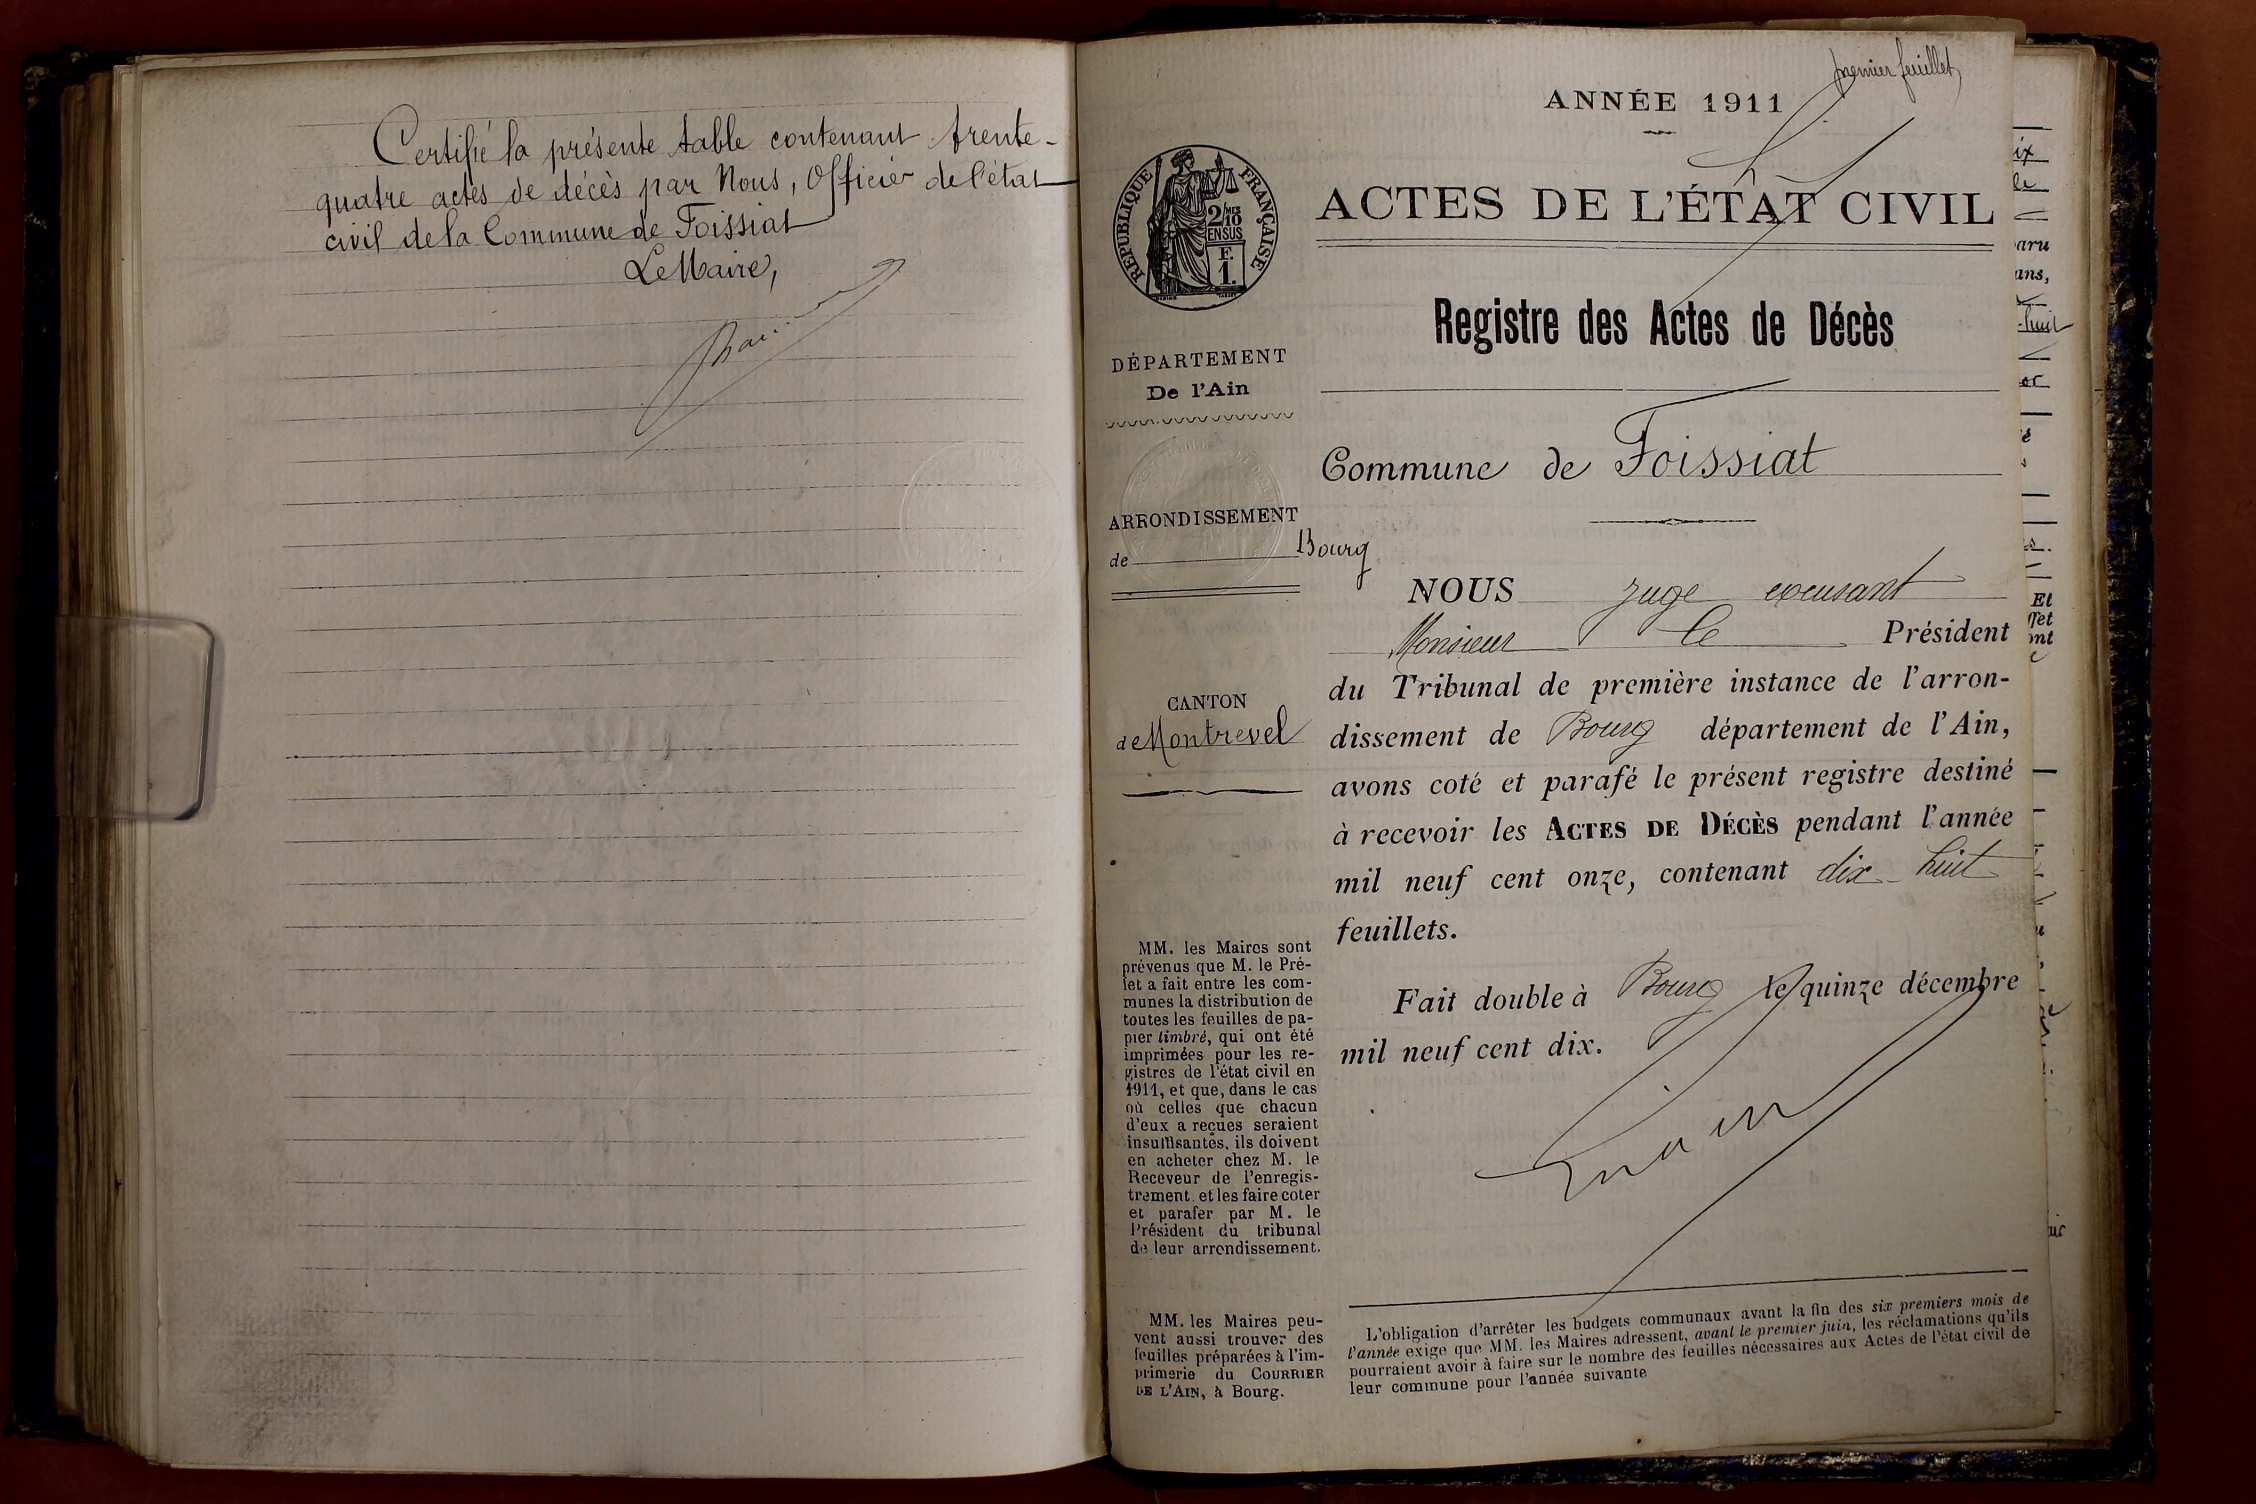 Certifié la présente table contenant trente-
quatre actes de décès par Nous, Officier de l'état
civil de la Commune de Foissiat
Le Maire,
premier feuillet
ANNÉE 1911
ACTES DE L'ÉTAT CIVIL
RÉPUBLIQUE FRANÇAISE
2/10
MES
EN SUS
F.
1.
Registre des Actes de Décès
DÉPARTEMENT
De l'Ain
Commune de Foissiat
ARRONDISSEMENT
de Bourg
CANTON
de Montrevel
NOUS juge excusant
Monsieur le Président
du Tribunal de première instance de l'arron-
dissement de Bourg département de l'Ain,
avons coté et parafé le présent registre destiné
à recevoir les ACTES DE DÉCÈS pendant l'année
mil neuf cent onze, contenant dix-huit
feuillets.
Fait double à Bourg le quinze décembre
mil neuf cent dix.
MM. les Maires sont
prévenus que M. le Pré-
fet a fait entre les com-
munes la distribution de
toutes les feuilles de pa-
pier timbré, qui ont été
imprimées pour les re-
gistres de l'état civil en
1911, et que, dans le cas
où celles que chacun
d'eux a reçues seraient
insuffisantes, ils doivent
en acheter chez M. le
Receveur de l'enregis-
trement et les faire coter
et parafer par M. le
Président du tribunal
de leur arrondissement.
MM. les Maires peu-
vent aussi trouver des
feuilles préparées à l'im-
primerie du COURRIER
DE L'AIN, à Bourg.
L'obligation d'arrêter les budgets communaux avant la fin des six premiers mois de
l'année exige que MM. les Maires adressent, avant le premier juin, les réclamations qu'ils
pourraient avoir à faire sur le nombre des feuilles nécessaires aux Actes de l'état civil de
leur commune pour l'année suivante